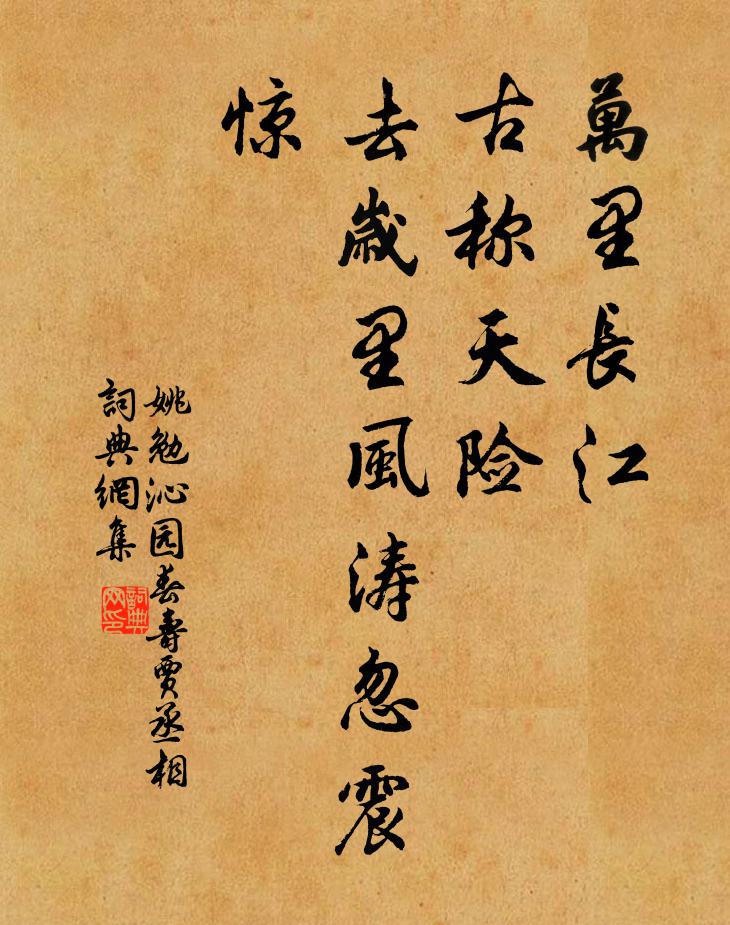 萬里長江
古称天险
去歲里風涛忽震
惊
姚勉沁园春壽賈丞相
詞典網集
詞典
网印